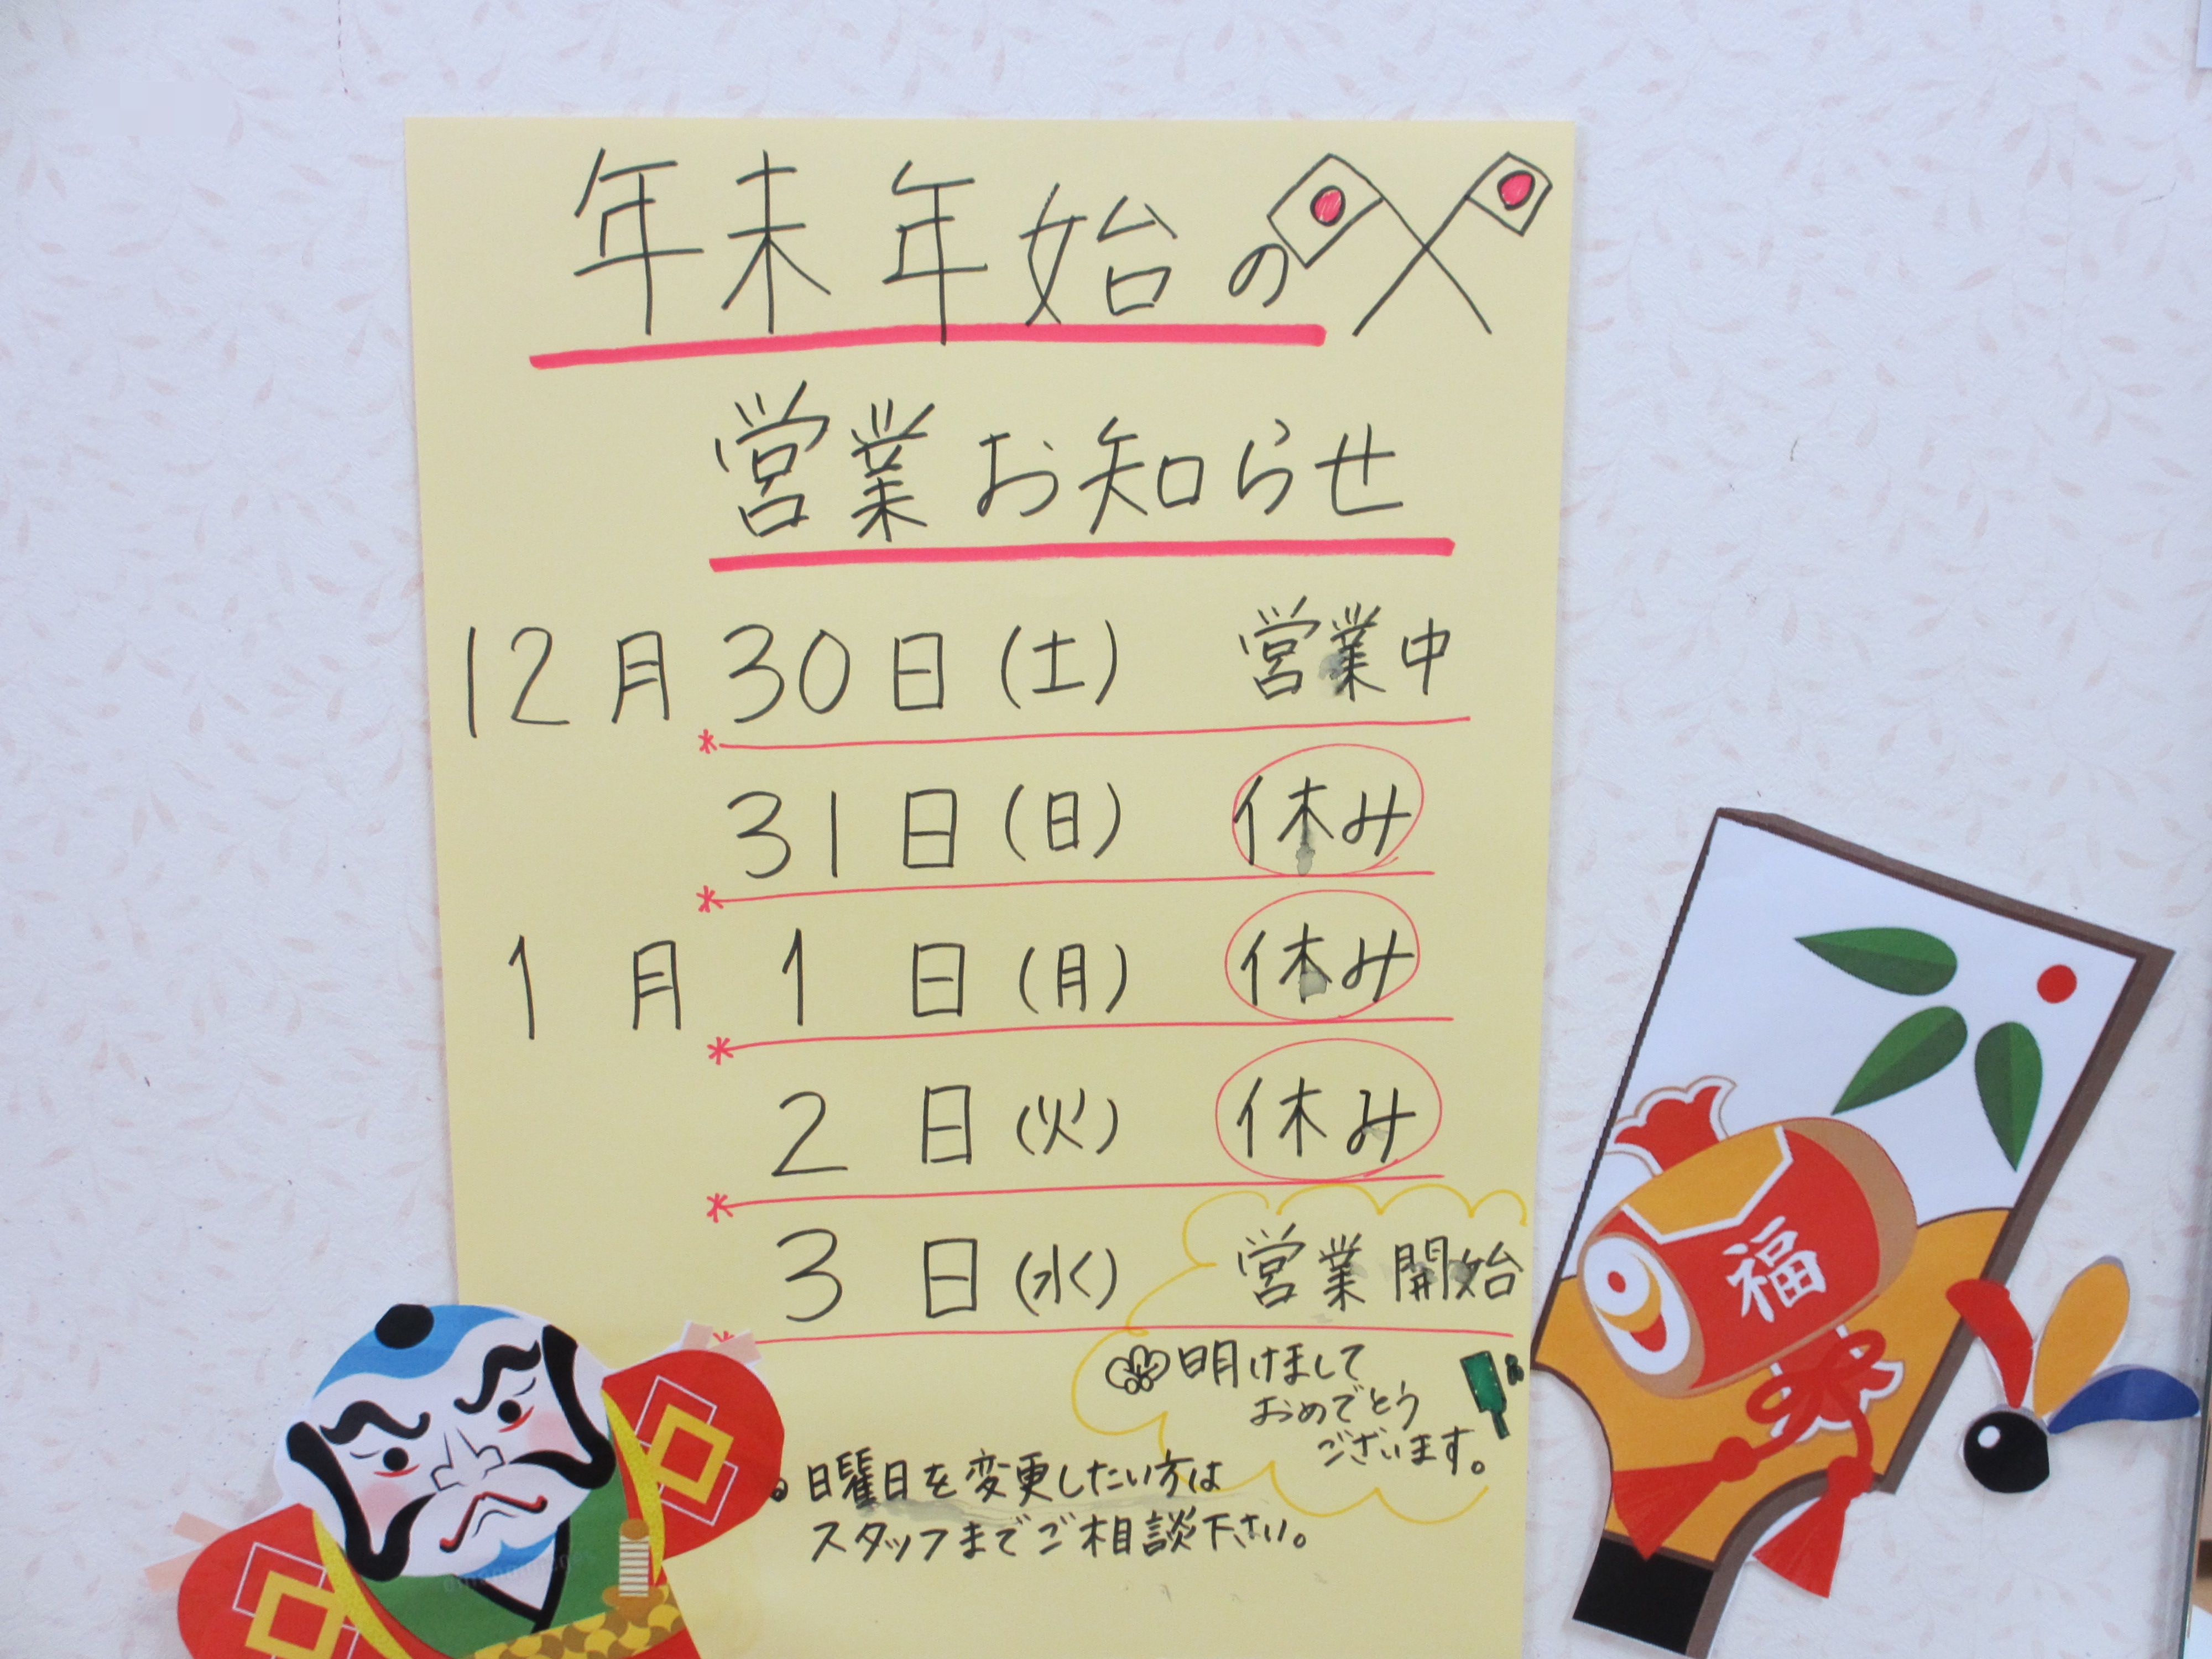 年末年始の
営業お知らせ
12月30日(土) 営業中
31日(日) 休み
1月1日(月) 休み
2日(火) 休み
3日(水) 営業開始
明けまして
おめでとう
ございます。
日曜日を変更したい方は
スタッフまでご相談下さい。
福